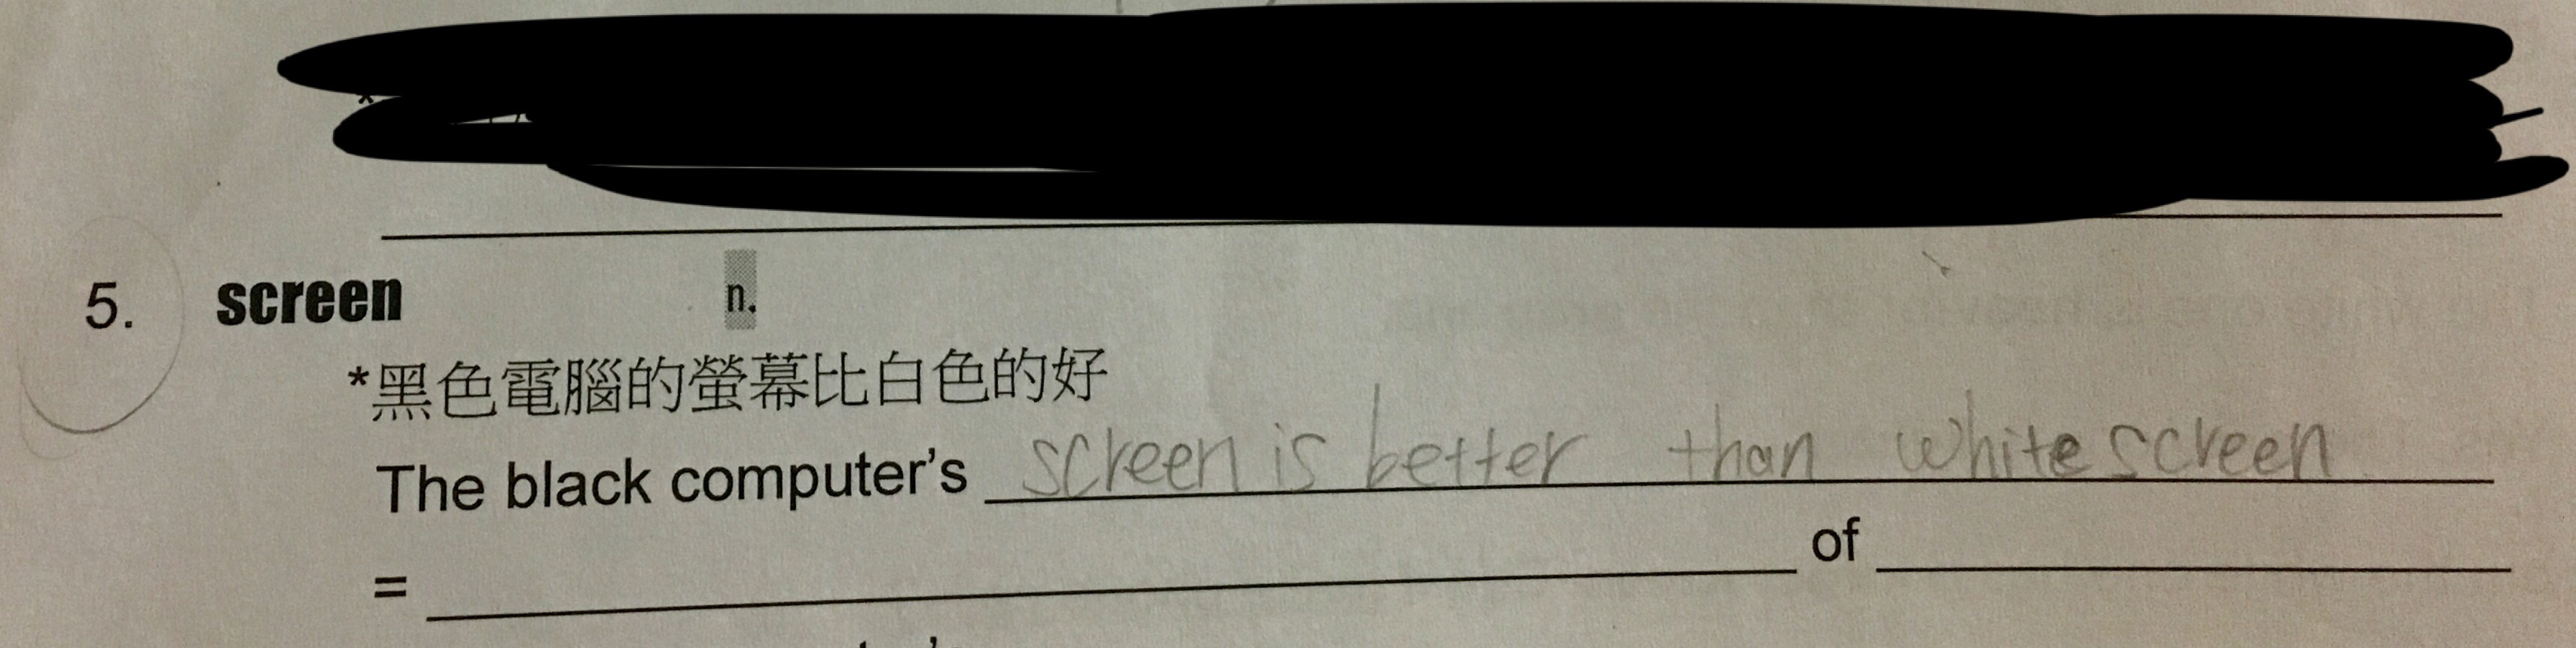 5. screen n.
*黑色電腦的螢幕比白色的好
The black computer's screen is better than white screen
= ____ of ____